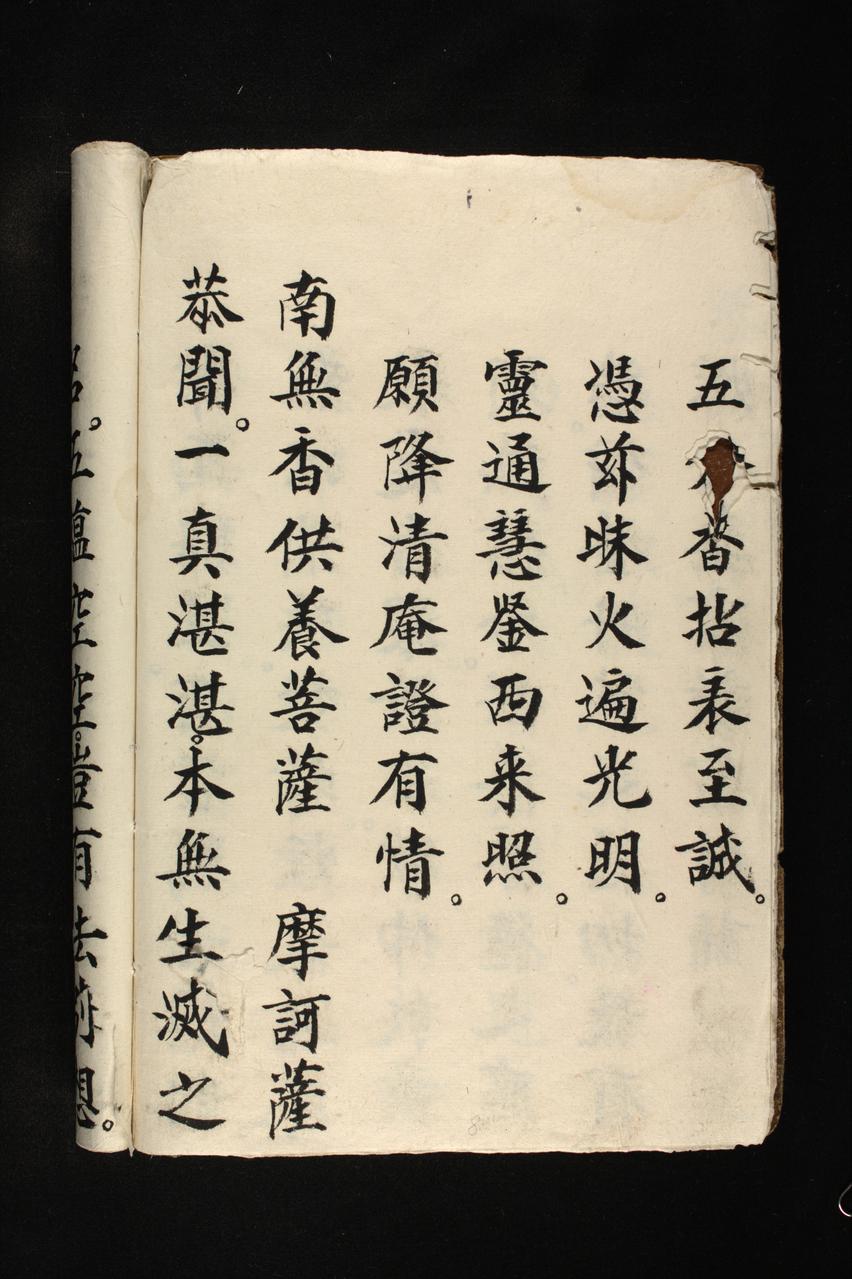 五沓拈表至誠。
憑茲昧火遍光明。
靈通慧鉴西来照。
願降清庵證有情。
南無香供養菩薩 摩訶薩
恭聞。一真湛湛。本無生滅之
名。五蘊空空。豈有去